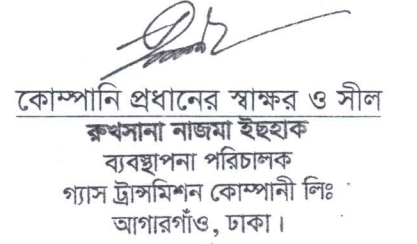 কোম্পানি প্রধানের স্বাক্ষর ও সীল
রুখসানা নাজমা ইছহাক
ব্যবস্থাপনা পরিচালক
গ্যাস ট্রান্সমিশন কোম্পানী লিঃ
আগারগাঁও, ঢাকা।